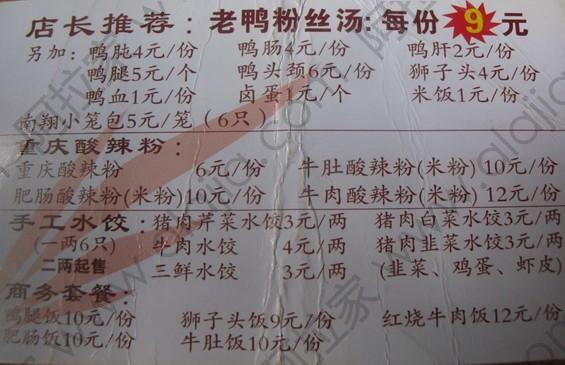 店长推荐：老鸭粉丝汤：每份9元
另加：鸭肫4元/份 鸭肠4元/份 鸭肝2元/份
鸭腿5元/个 鸭头颈6元/份 狮子头4元/份
鸭血1元/份 卤蛋1元/个 米饭1元/份
南翔小笼包5元/笼（6只）
重庆酸辣粉：
重庆酸辣粉 6元/份 牛肚酸辣粉(米粉) 10元/份
肥肠酸辣粉(米粉)10元/份 牛肉酸辣粉(米粉) 12元/份
手工水饺：猪肉芹菜水饺3元/两 猪肉白菜水饺3元/两
(一两6只) 牛肉水饺 4元/两 猪肉韭菜水饺3元/两
二两起售 三鲜水饺 3元/两 (韭菜、鸡蛋、虾皮)
商务套餐：
鸭腿饭10元/份 狮子头饭9元/份 红烧牛肉饭12元/份
肥肠饭10元/份 牛肚饭10元/份